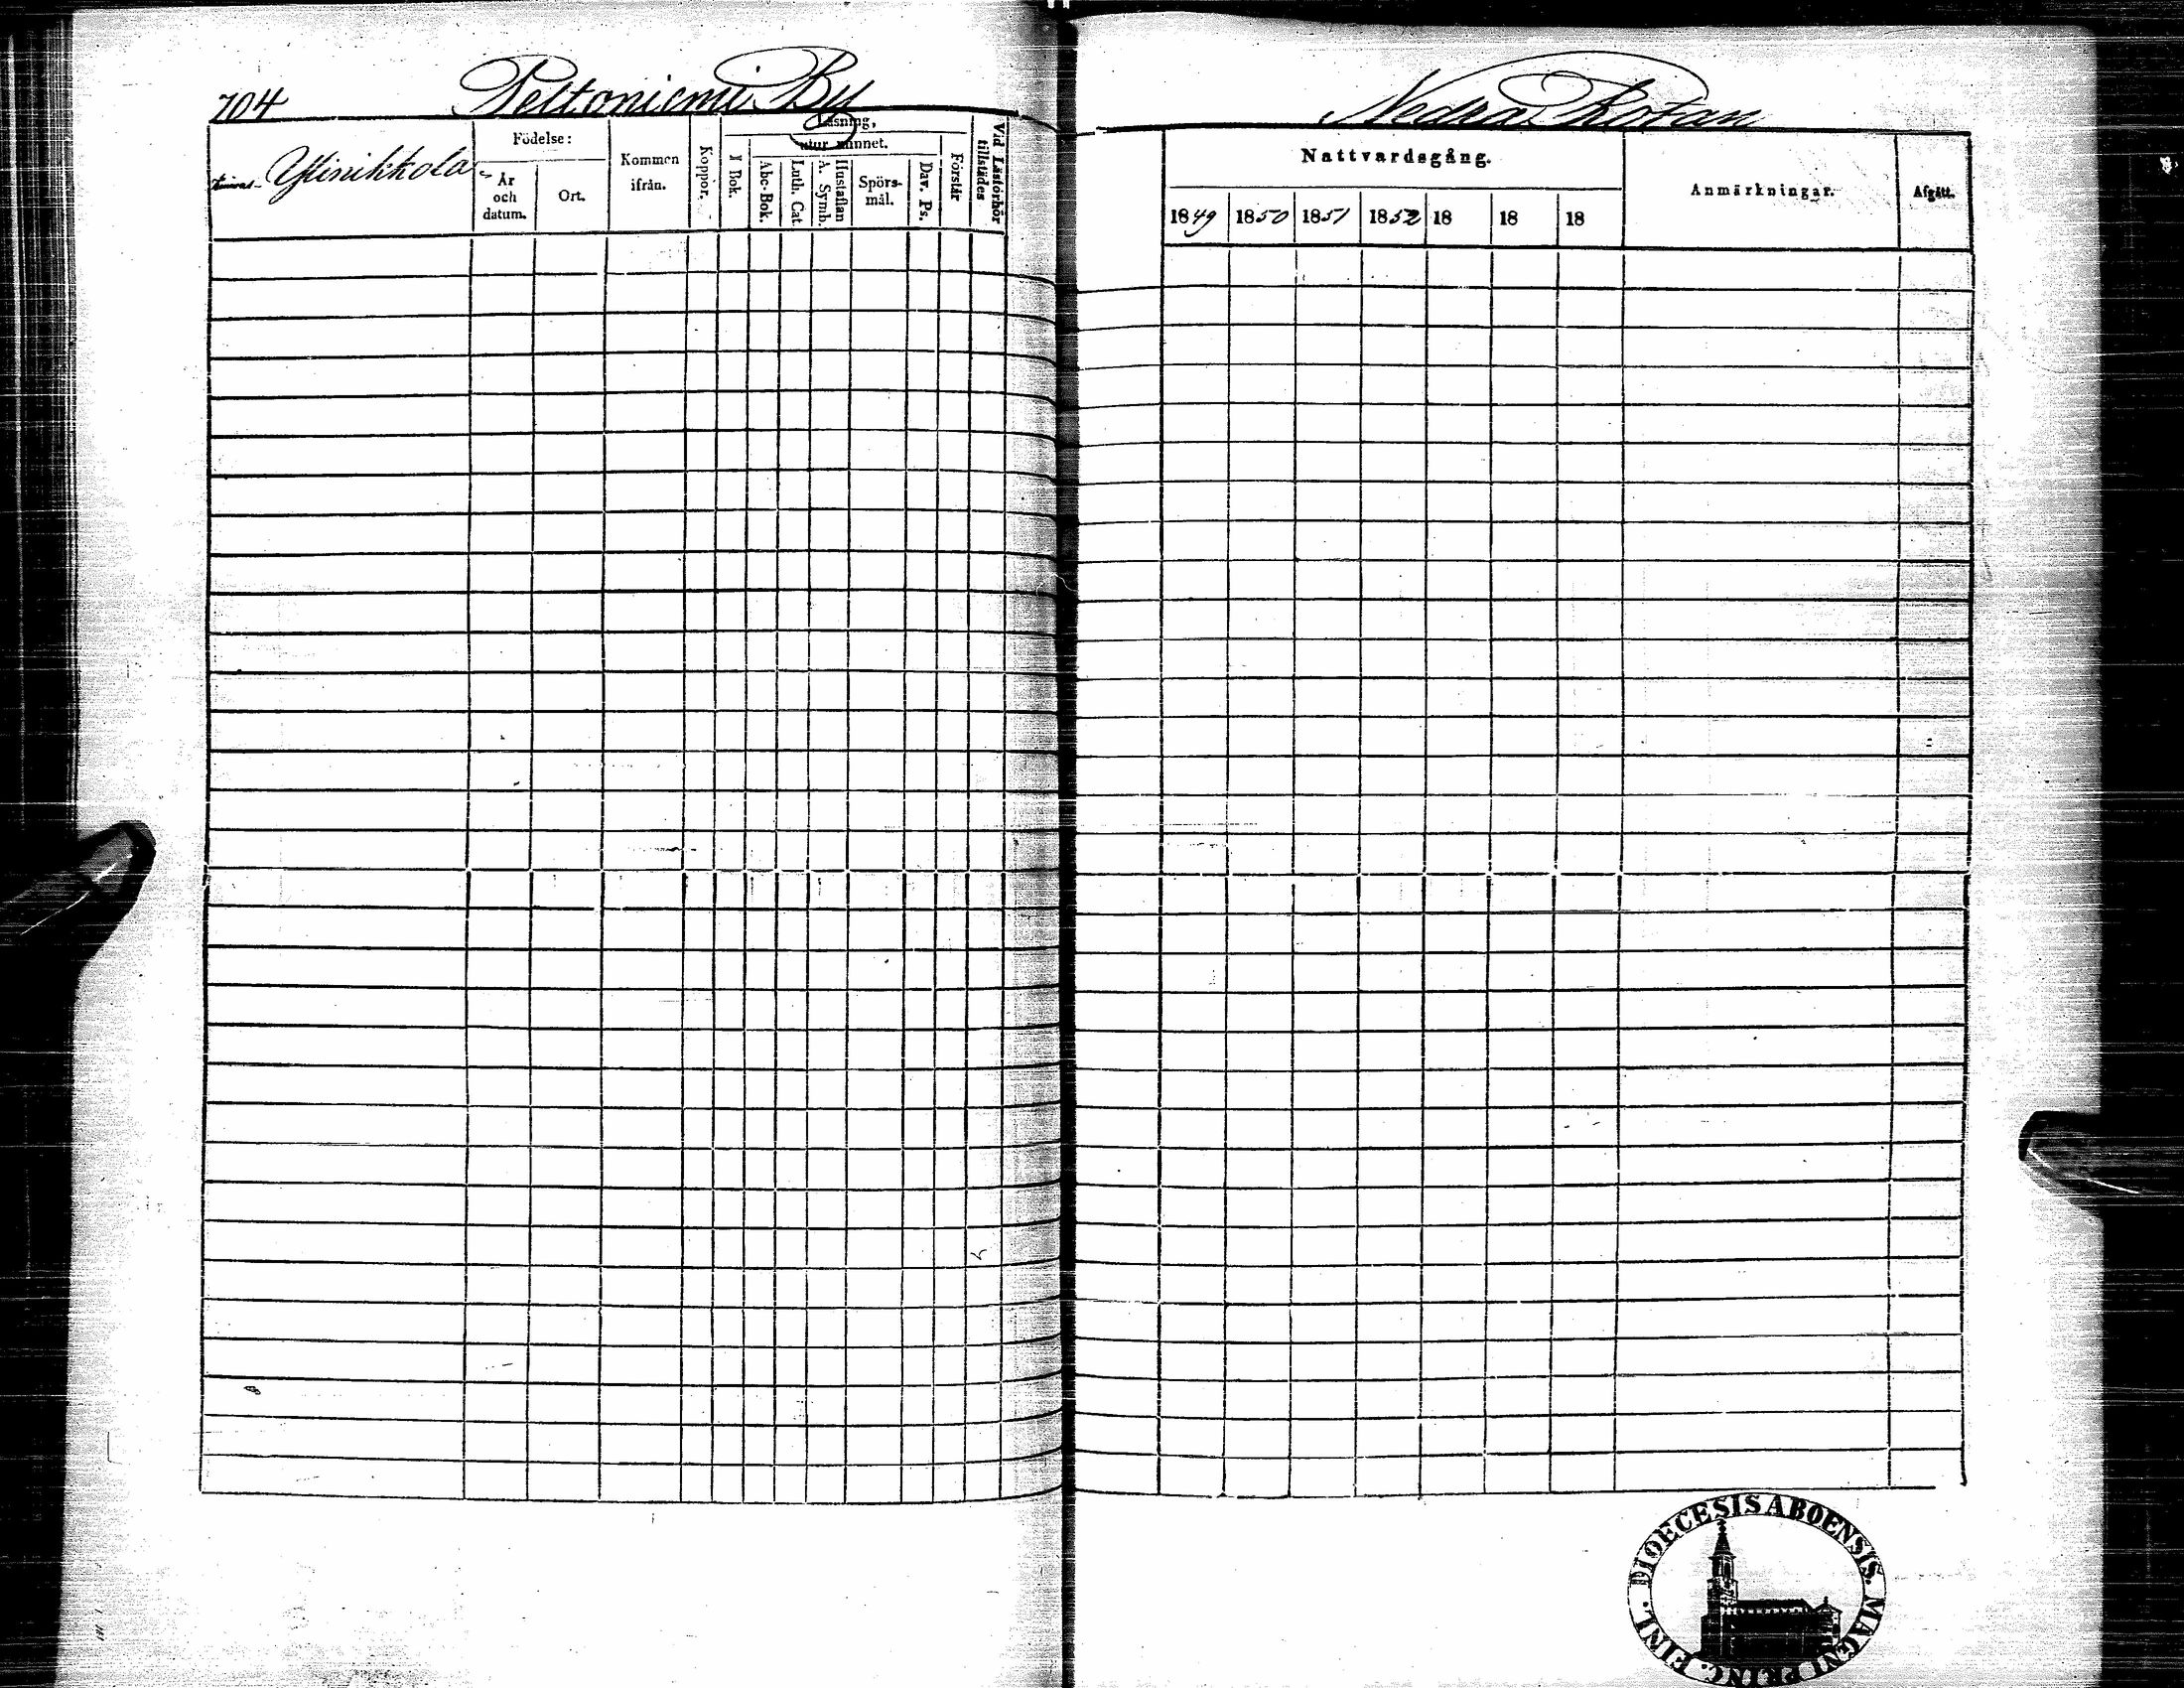 704
Peltoniemi By
Ylinikkola
Födelse:
År och datum.
Ort.
Kommen ifrån.
Koppor.
Läsning,
I Bok.
utur minnet.
Abc-Bok.
Luth. Cat.
A. Symb.
Hustaflan
Spörs-mål.
Dav. Ps.
Förstår
Vid Läsförhör tillstädes
Nedra Rotan
Nattvardsgång.
1849 1850 1851 1852 18 18 18
Anmärkningar.
Afgått.
DIOECESIS ABOENSIS. MAGNI PRINC. FINL.